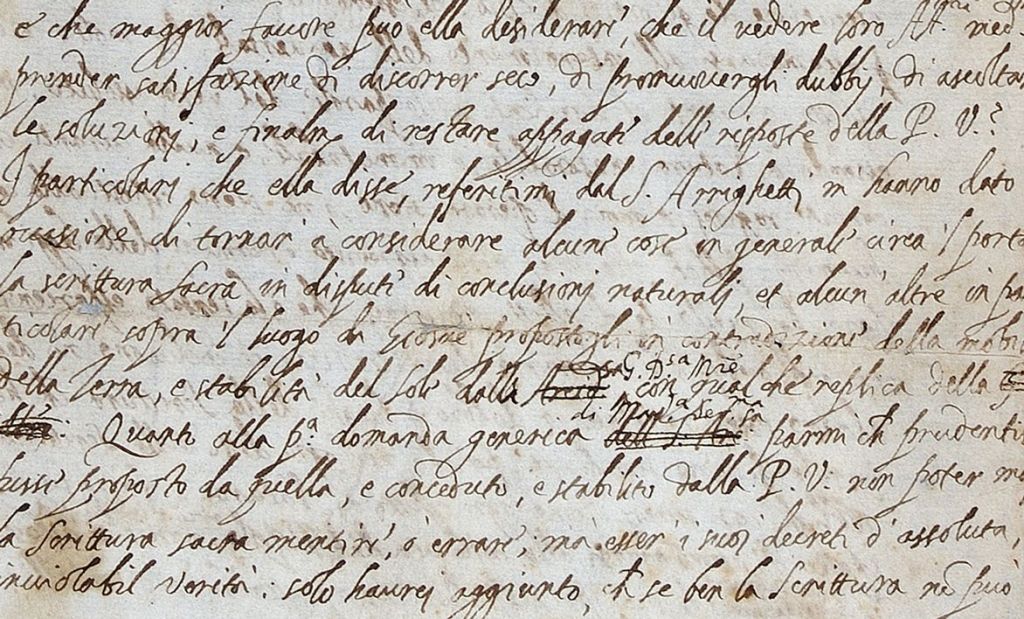 e che maggior favore può ella desiderare, che il vedere loro AA.
prender satisfazione di discorrer seco, di promuovergli dubbij, di ascoltar
le soluzioni, e finalm. di restare appagate delle risposte della P. V.?
I particolari che ella disse, referitimi dal S. Arrighetti m hanno dato
occasione di tornar à considerare alcune cose in generale circa 'l porta
la scrittura sacra in dispute di conclusioni naturali, et alcun' altre in par
ticolare sopra 'l luogo di Giosuè propostogli in contradizione della mobi
della Terra, e stabilità del sole dalla G. D.sa Mre con qualche replica della
di M.a Ser.ma
Quanto alla p.a domanda generica parmi ch prudentis
fusse proposto da quella, e conceduto, e stabilito dalla P. V. non poter m
la Scrittura sacra mentire, ò errare, ma esser i suoi decreti d' assoluta,
inviolabil verità: solo haurei aggiunto, ch se ben la Scrittura nō può